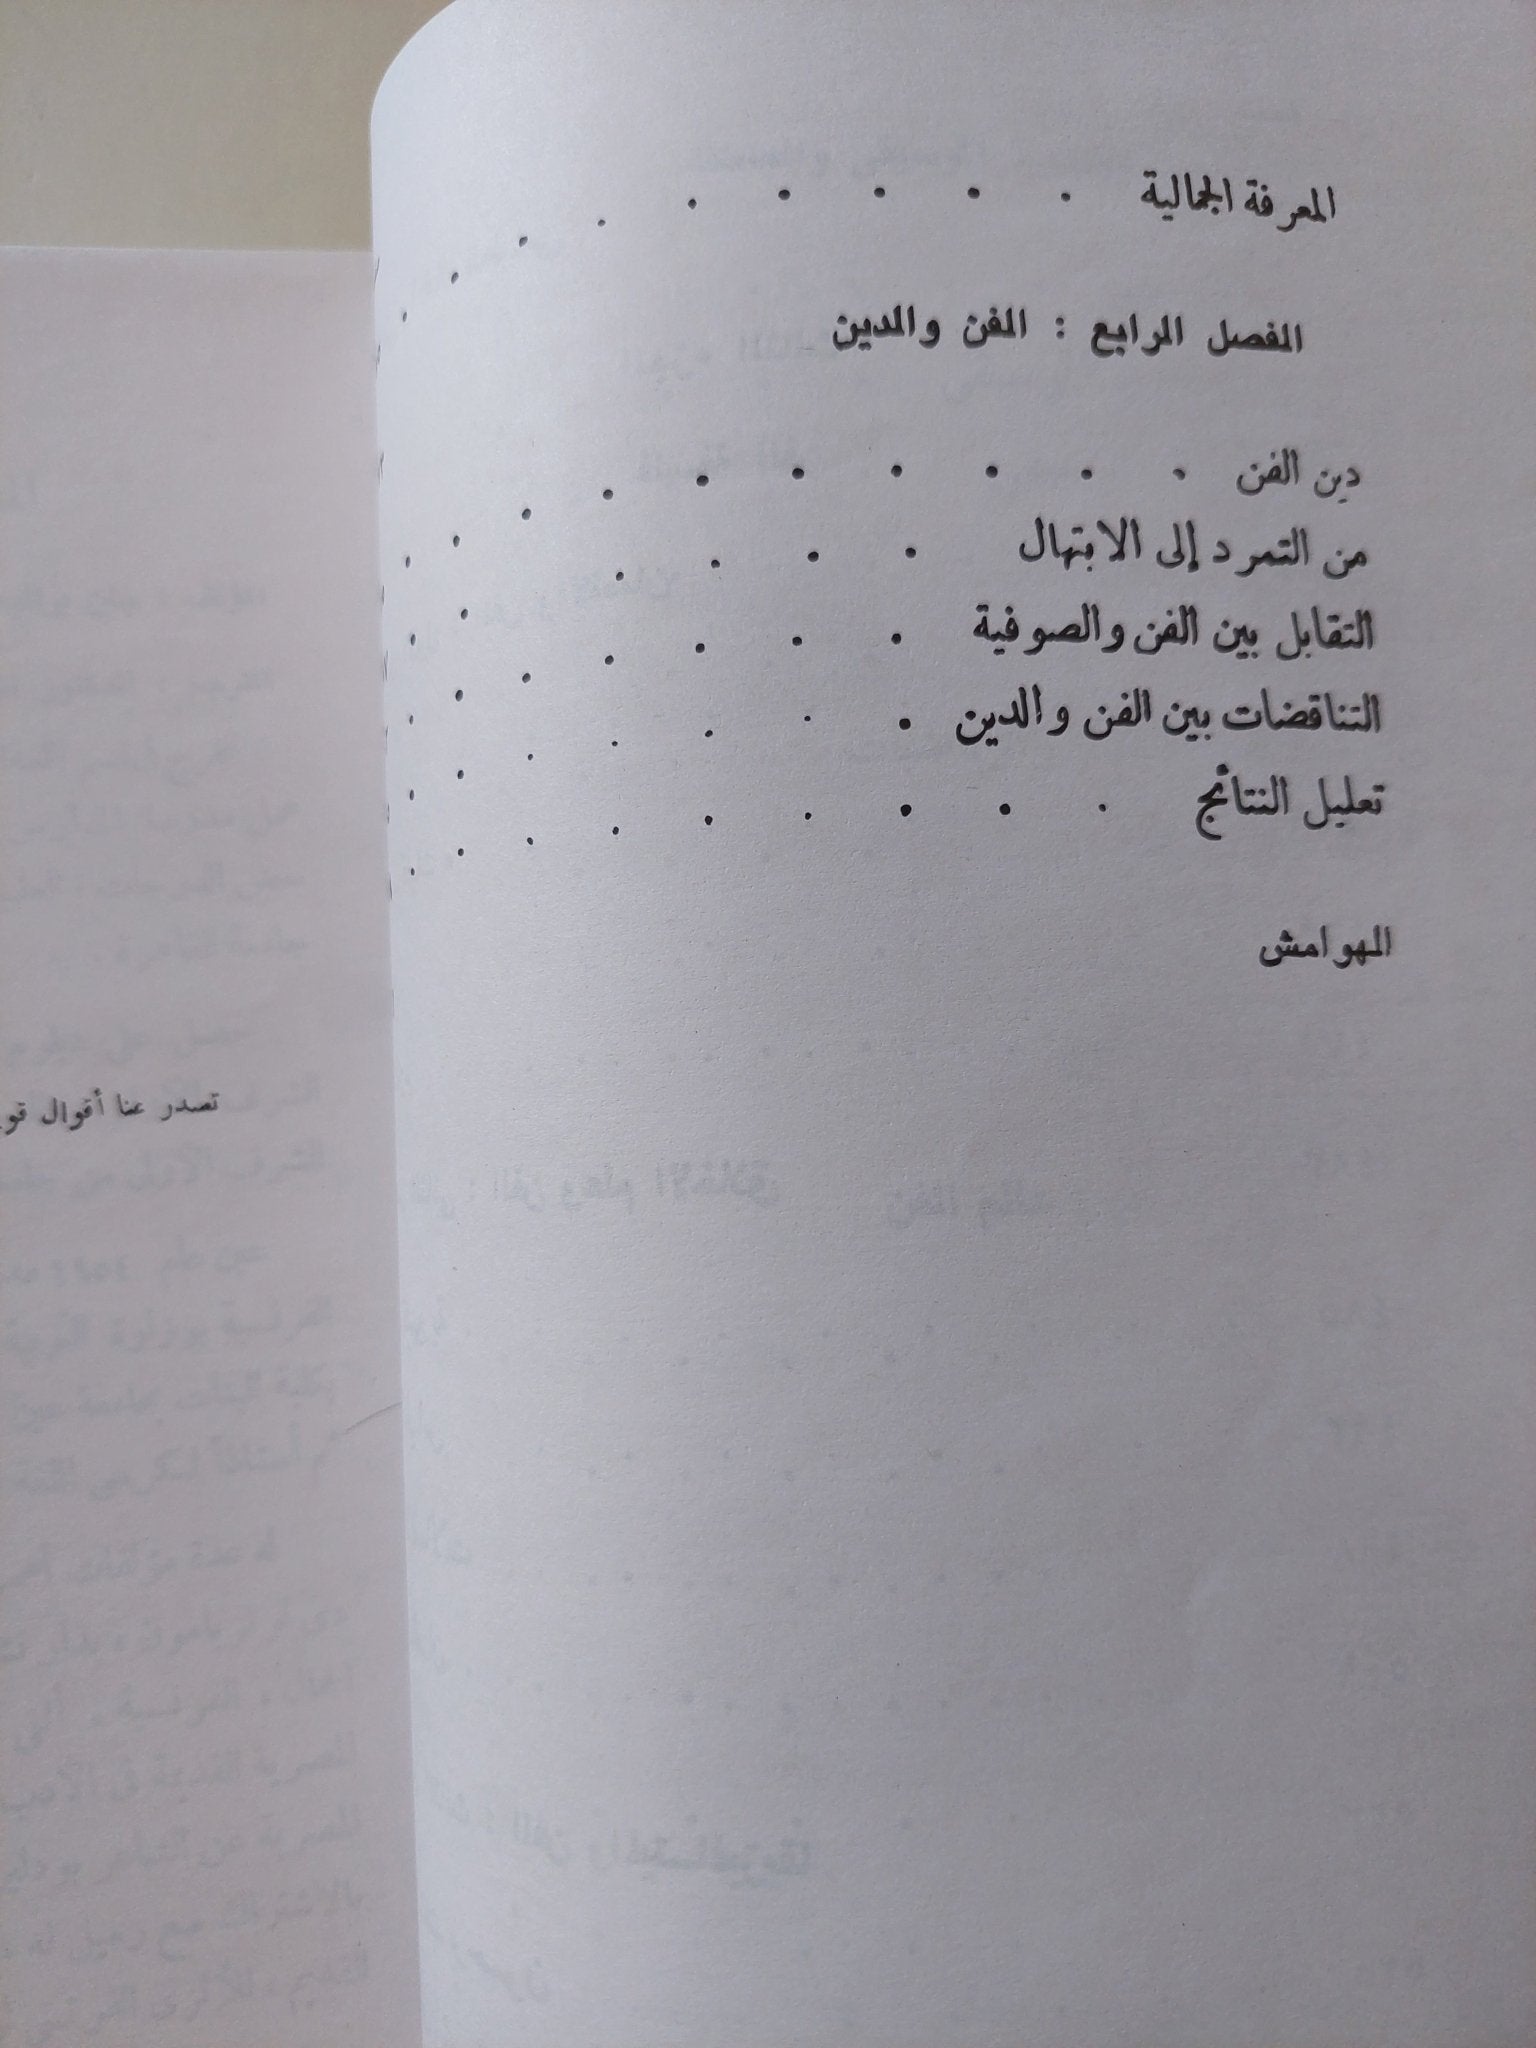 المعرفة الجمالية . . . . . . . . .
الفصل الرابع : الفن والدين
دين الفن . . . . . . . . .
من التمرد إلى الابتهال . . . . . .
التقابل بين الفن والصوفية . . . . . . .
التناقضات بين الفن والدين . . . . . . .
تعليل النتائج . . . . . . . . .
الهوامش
تصدر عنا أقوال